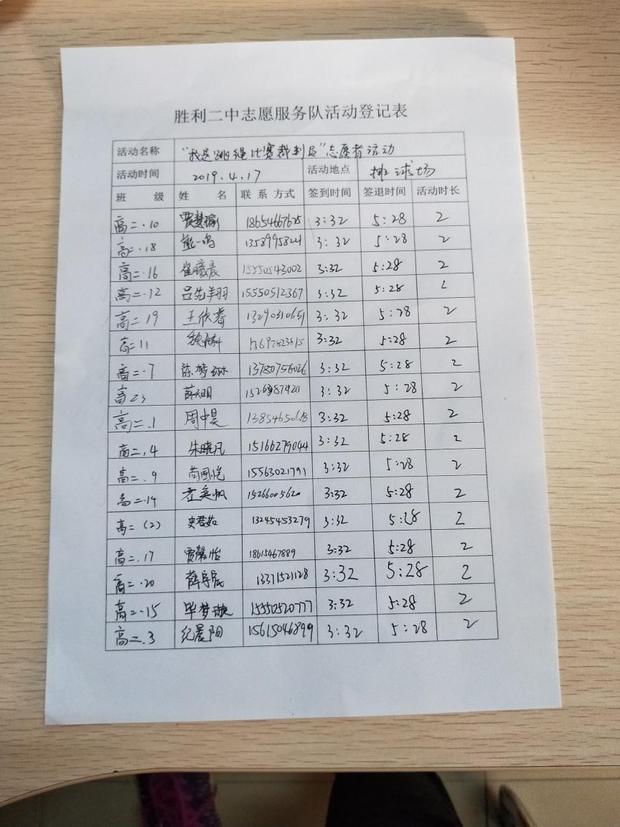 胜利二中志愿服务队活动登记表
活动名称 "我是跳绳比赛裁判员"志愿者活动
活动时间 2019.4.17 活动地点 排球场
班 级 姓 名 联 系 方式 签到时间 签退时间 活动时长
高二.10 贾慧瑜 18654667625 3:32 5:28 2
高二.18 熊一鸣 1358995821 3:32 5:28 2
高二.16 崔曦晨 15550543002 3:32 5:28 2
高二.12 吕先美羽 15550512367 3:32 5:28 2
高二 19 王欣睿 3:32 5:28 2
高二11 3:32 5:28 2
高二.7 陈梦琳 13780756026 3:32 5:28 2
高二5 3:32 5:28 2
高二.1 周中昊 3:32 5:28 2
高二.4 朱晓凡 15166279044 3:32 5:28 2
高二.9 15563021791 3:32 5:28 2
高二.14 15266005620 3:32 5:28 2
高二(2) 史君茹 13245453279 3:32 5:28 2
高二.17 贾馨怡 18615467889 3:32 5:28 2
高二.20 薛宇晨 13371521128 3:32 5:28 2
高二.15 毕梦璇 15550520777 3:32 5:28 2
高二.3 纪晨阳 15615046899 3:32 5:28 2